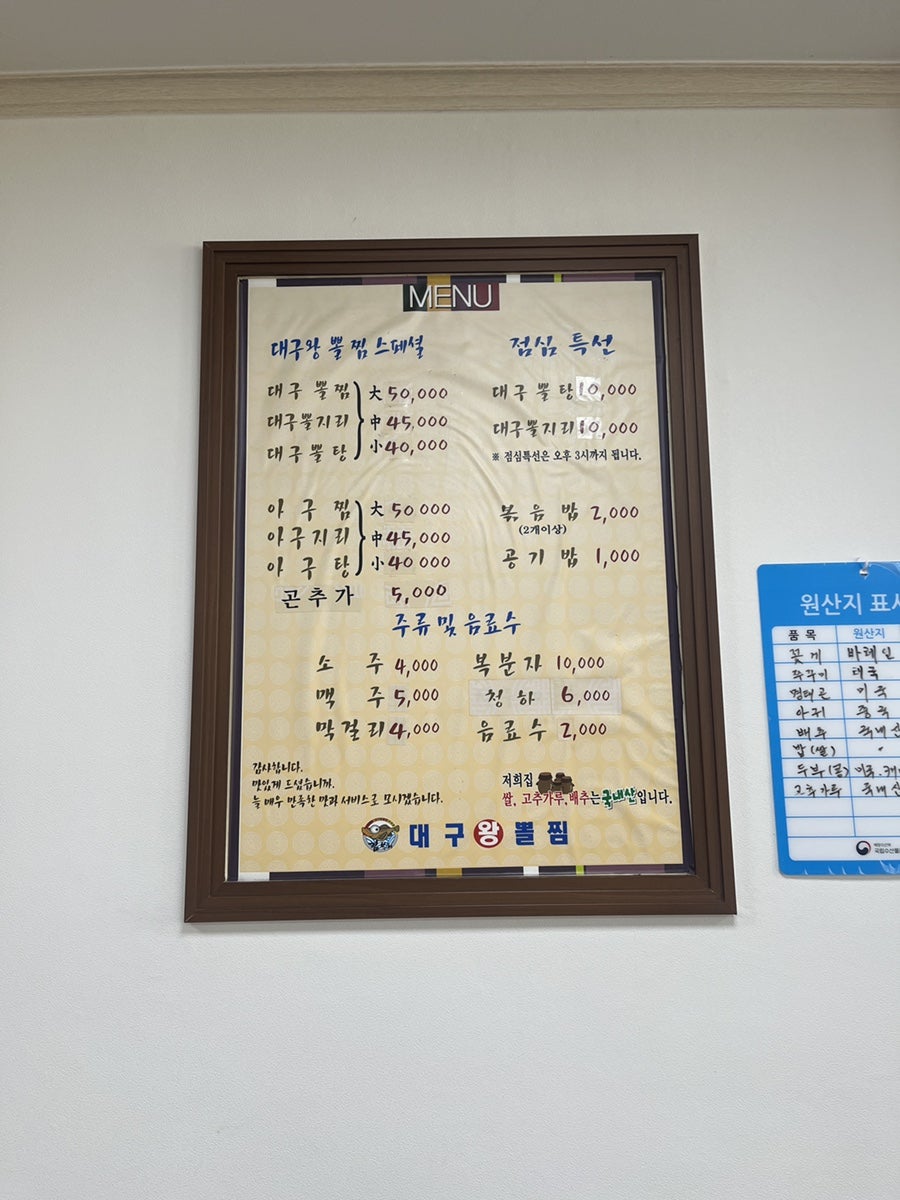 MENU
대구왕 뽈찜 스페셜
대구 뽈찜
대구뽈지리
대구 뽈탕
大 50,000
中 45,000
小 40,000
아구찜
아구지리
아구탕
大 50 000
中 45,000
小 40 000
곤 추 가 5,000
점심 특선
대구 뽈탕 10,000
대구뽈지리 10,000
※ 점심특선은 오후 3시까지 됩니다.
볶음밥 2,000
(2개이상)
공기밥 1,000
주류 및 음료수
소주 4,000
맥주 5,000
막걸리 4,000
복분자 10,000
청하 6,000
음료수 2,000
감사합니다.
맛있게 드셨습니까.
늘 매우 만족한 맛과 서비스로 모시겠습니다.
저희집
쌀, 고추가루, 배추는 국내산입니다.
대구왕뽈찜
원산지 표시
품 목 원산지
꽃게 바레인
쭈꾸미 태국
미국
아귀 중국
배추 국내산
밥(쌀) "
두부(콩) 미국.
고추가루 국내산